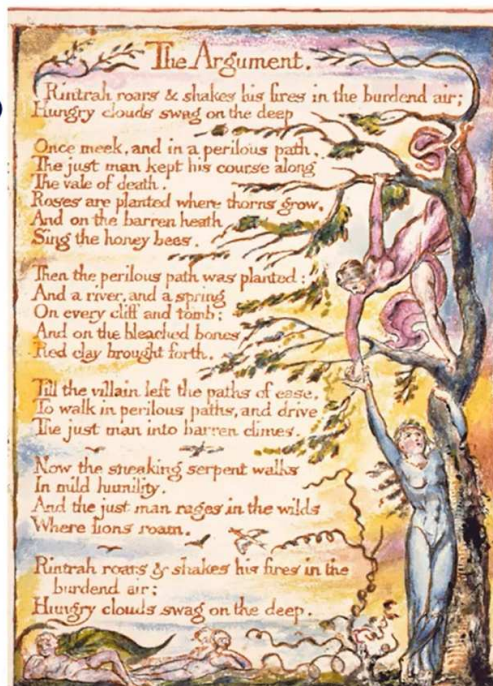 The Argument.
Rintrah roars & shakes his fires in the burdend air;
Hungry clouds swag on the deep
Once meek, and in a perilous path
The just man kept his course along
The vale of death.
Roses are planted where thorns grow,
And on the barren heath
Sing the honey bees.
Then the perilous path was planted:
And a river, and a spring
On every cliff and tomb;
And on the bleached bones
Red clay brought forth.
Till the villain left the paths of ease,
To walk in perilous paths, and drive
The just man into barren climes.
Now the sneaking serpent walks
In mild humility.
And the just man rages in the wilds
Where lions roam.
Rintrah roars & shakes his fires in the
burdend air;
Hungry clouds swag on the deep.